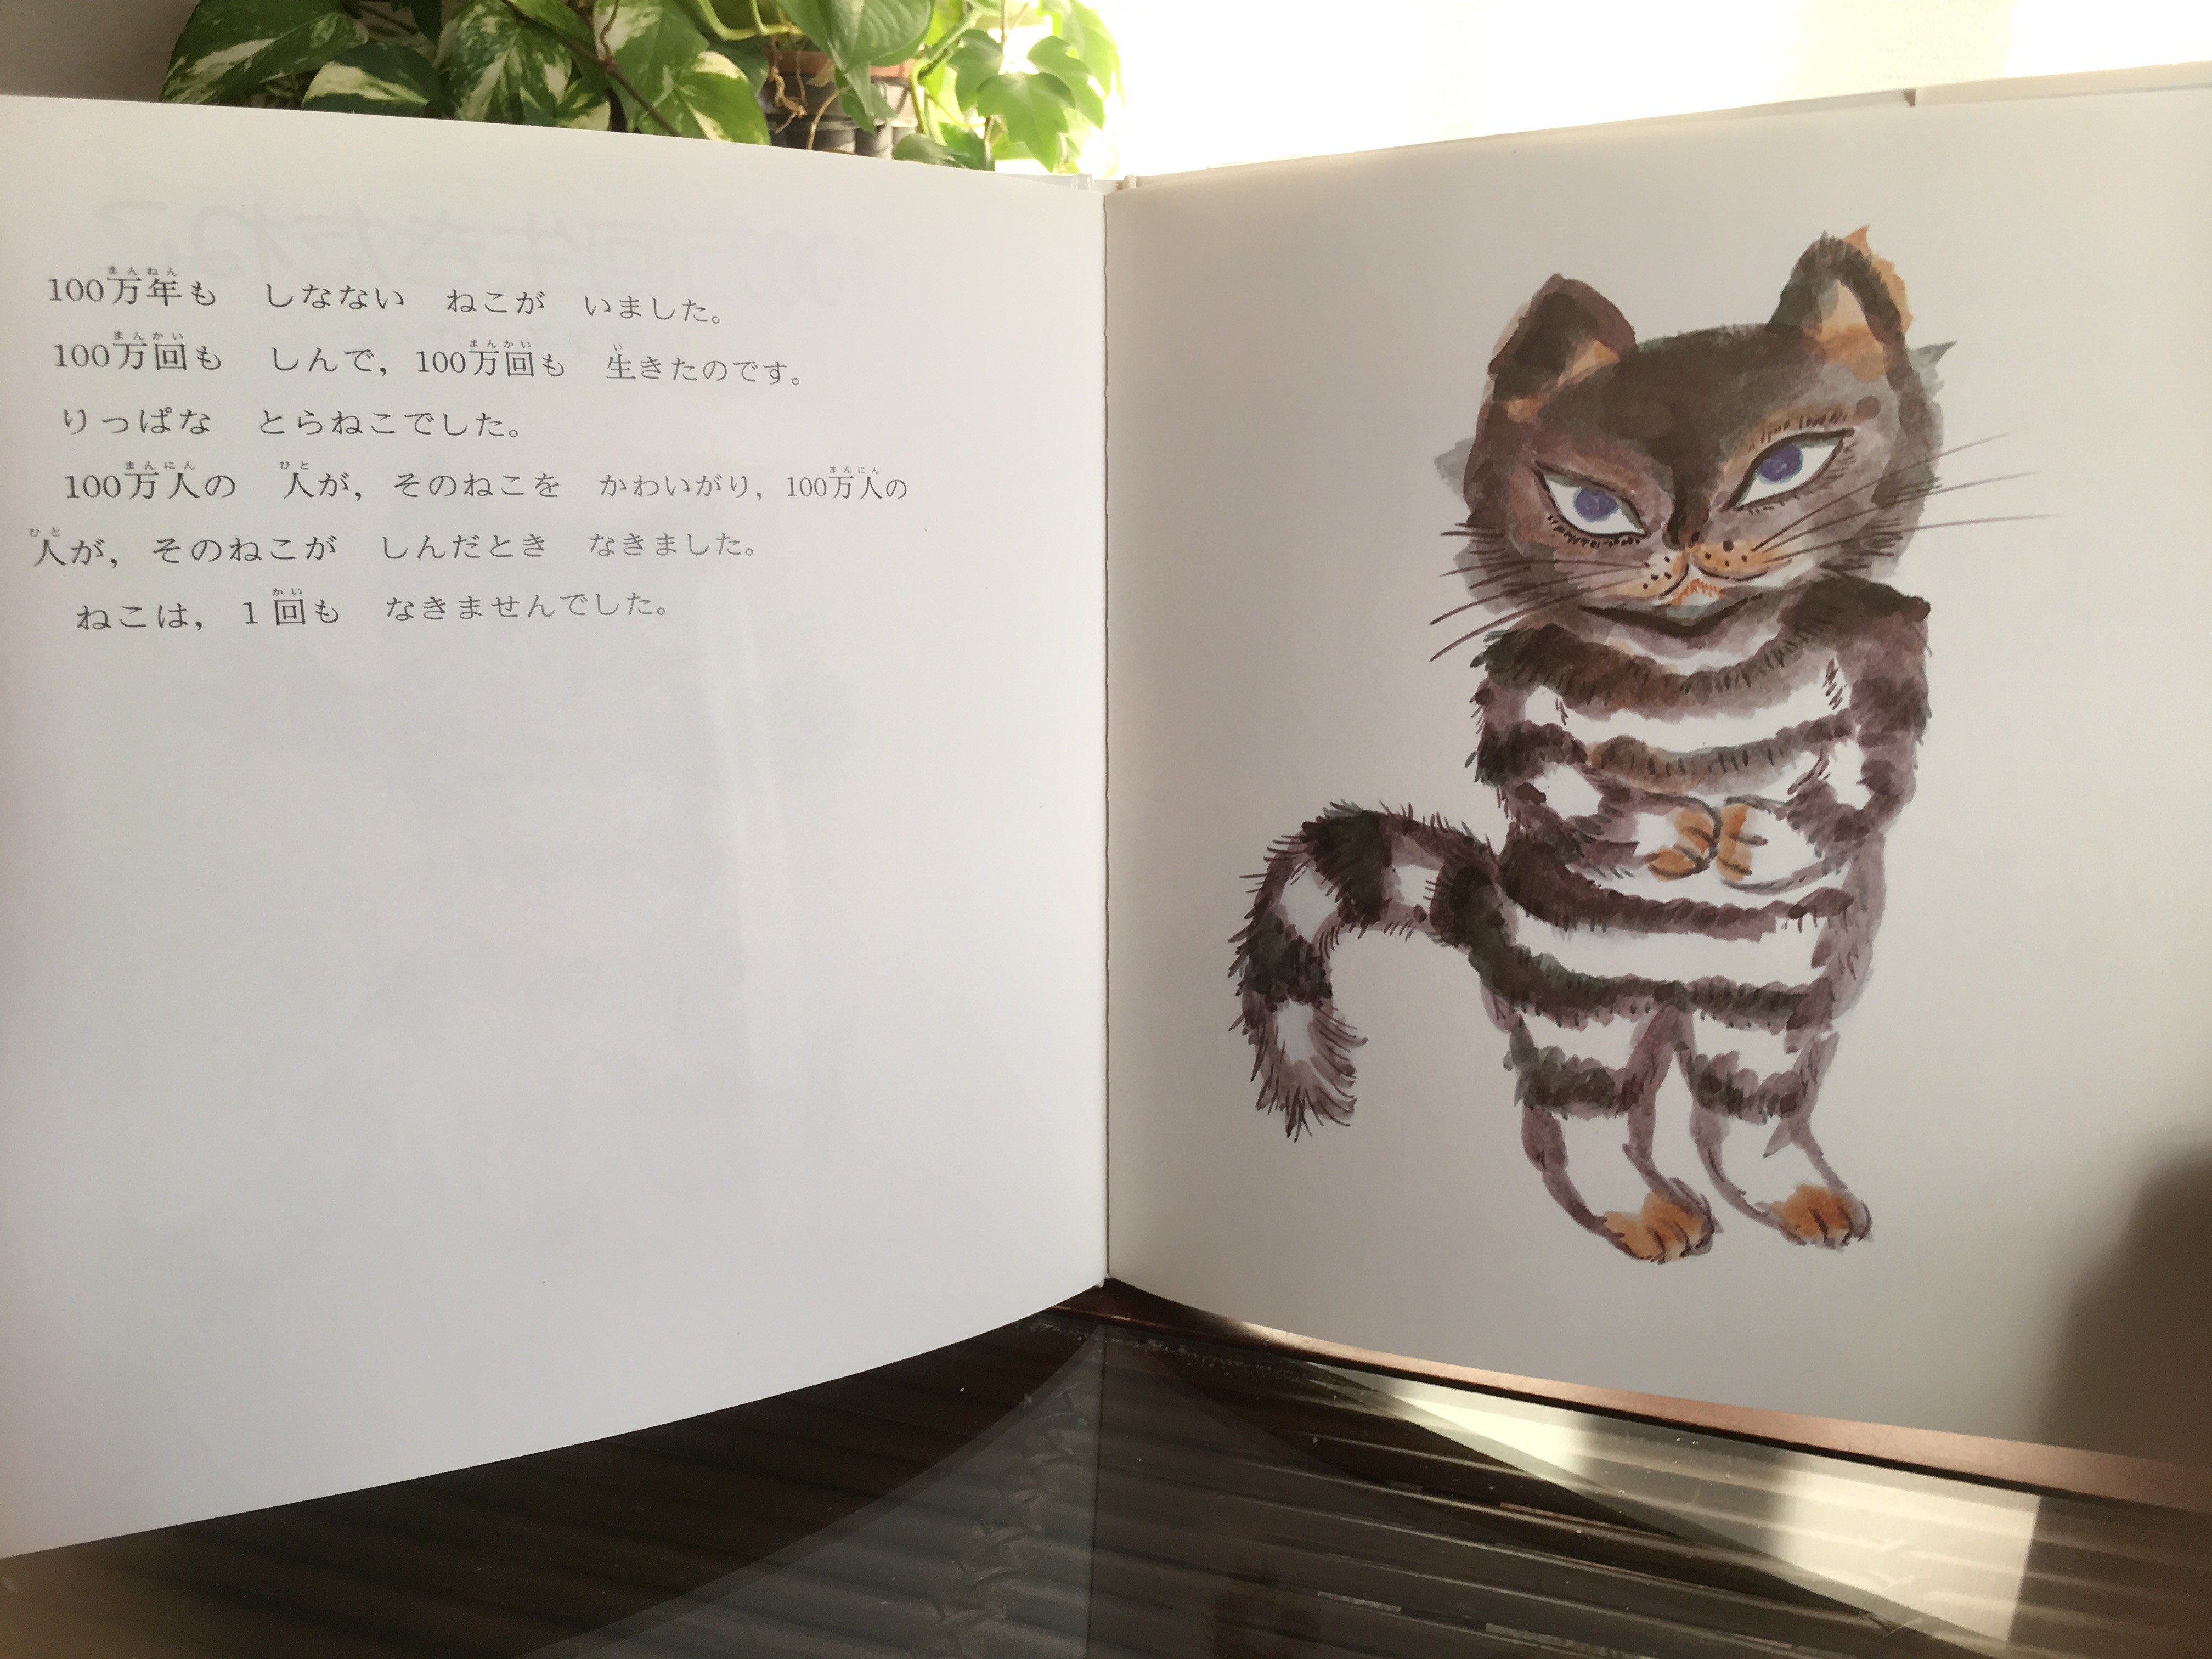 100万年も　しなない　ねこが　いました。
100万回も　しんで，100万回も　生きたのです。
りっぱな　とらねこでした。
100万人の　人が，そのねこを　かわいがり，100万人の
人が，そのねこが　しんだとき　なきました。
ねこは，1回も　なきませんでした。